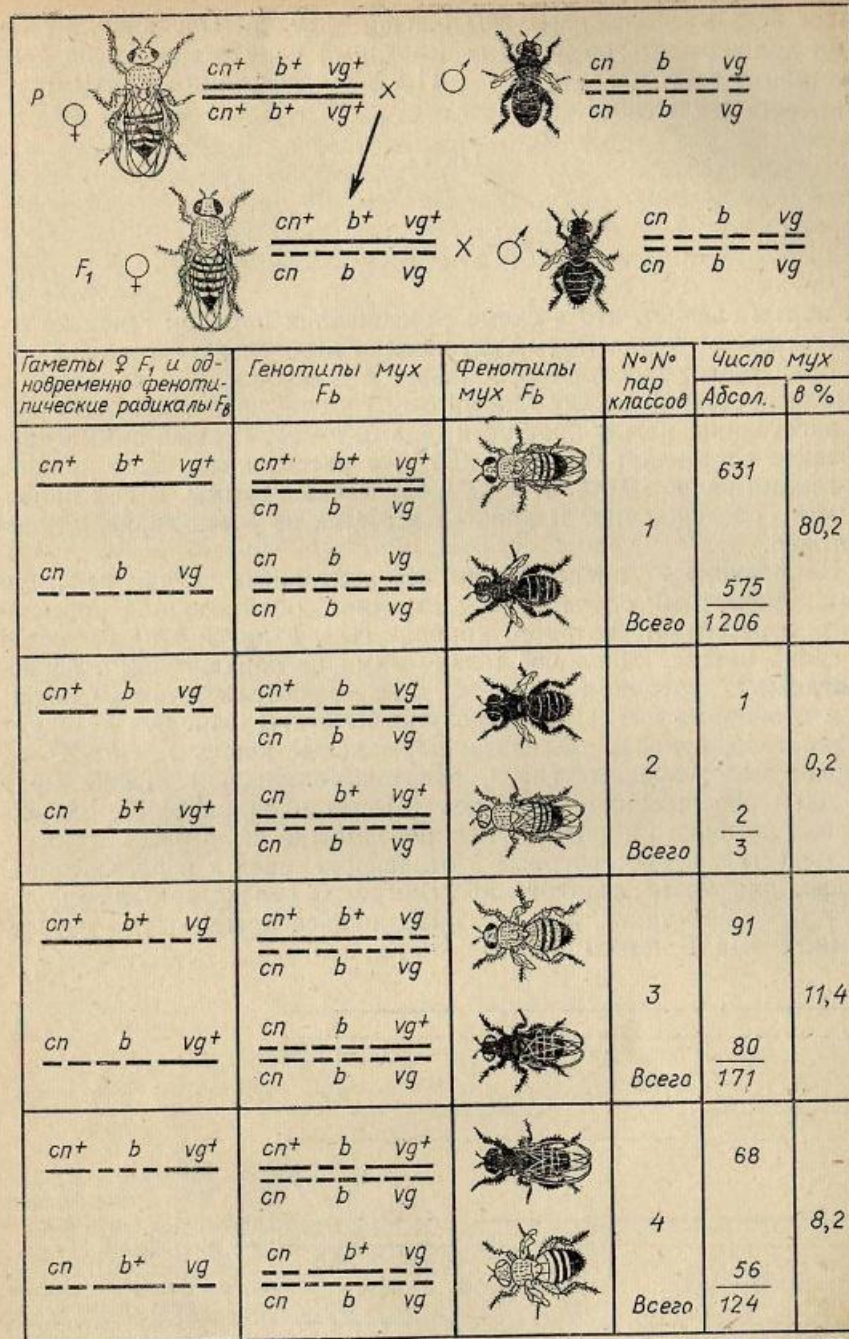 P ♀ cn+ b+ vg+ × ♂ cn b vg
cn+ b+ vg+ cn b vg
F₁ ♀ cn+ b+ vg+ × ♂ cn b vg
cn b vg cn b vg
Гаметы ♀ F₁ и од-
новременно феноти-
пические радикалы Fв
Генотипы мух
Fb
Фенотипы
мух Fb
N°N°
пар
классов
Число мух
Абсол. в %
cn+ b+ vg+ cn+ b+ vg+ 631
cn b vg
1 80,2
cn b vg cn b vg 575
cn b vg
Всего 1206
cn+ b vg cn+ b vg 1
cn b vg
2 0,2
cn b+ vg+ cn b+ vg+ 2
cn b vg
Всего 3
cn+ b+ vg cn+ b+ vg 91
cn b vg
3 11,4
cn b vg+ cn b vg+ 80
cn b vg
Всего 171
cn+ b vg+ cn+ b vg+ 68
cn b vg
4 8,2
cn b+ vg cn b+ vg 56
cn b vg
Всего 124